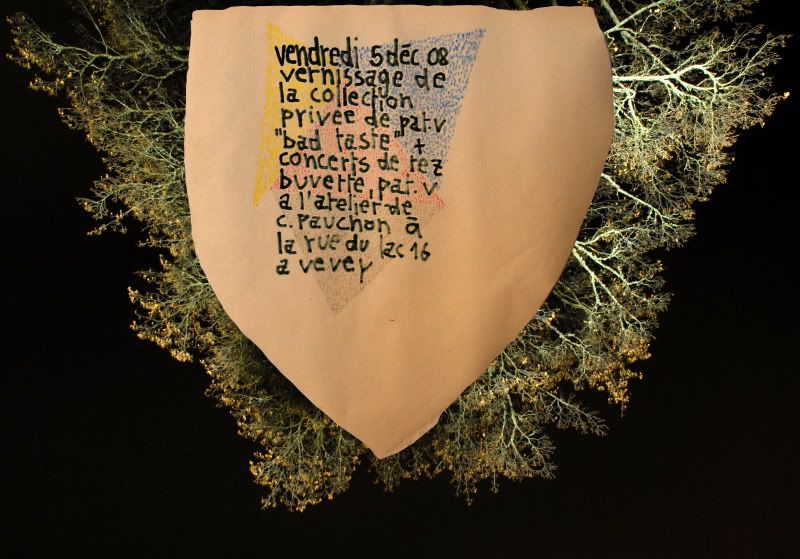 vendredi 5 déc 08
vernissage de
la collection
privée de pat.v
"bad taste" +
concerts de rez
buvette, pat. v
a l'atelier de
c. pauchon à
la rue du lac 16
a vevey